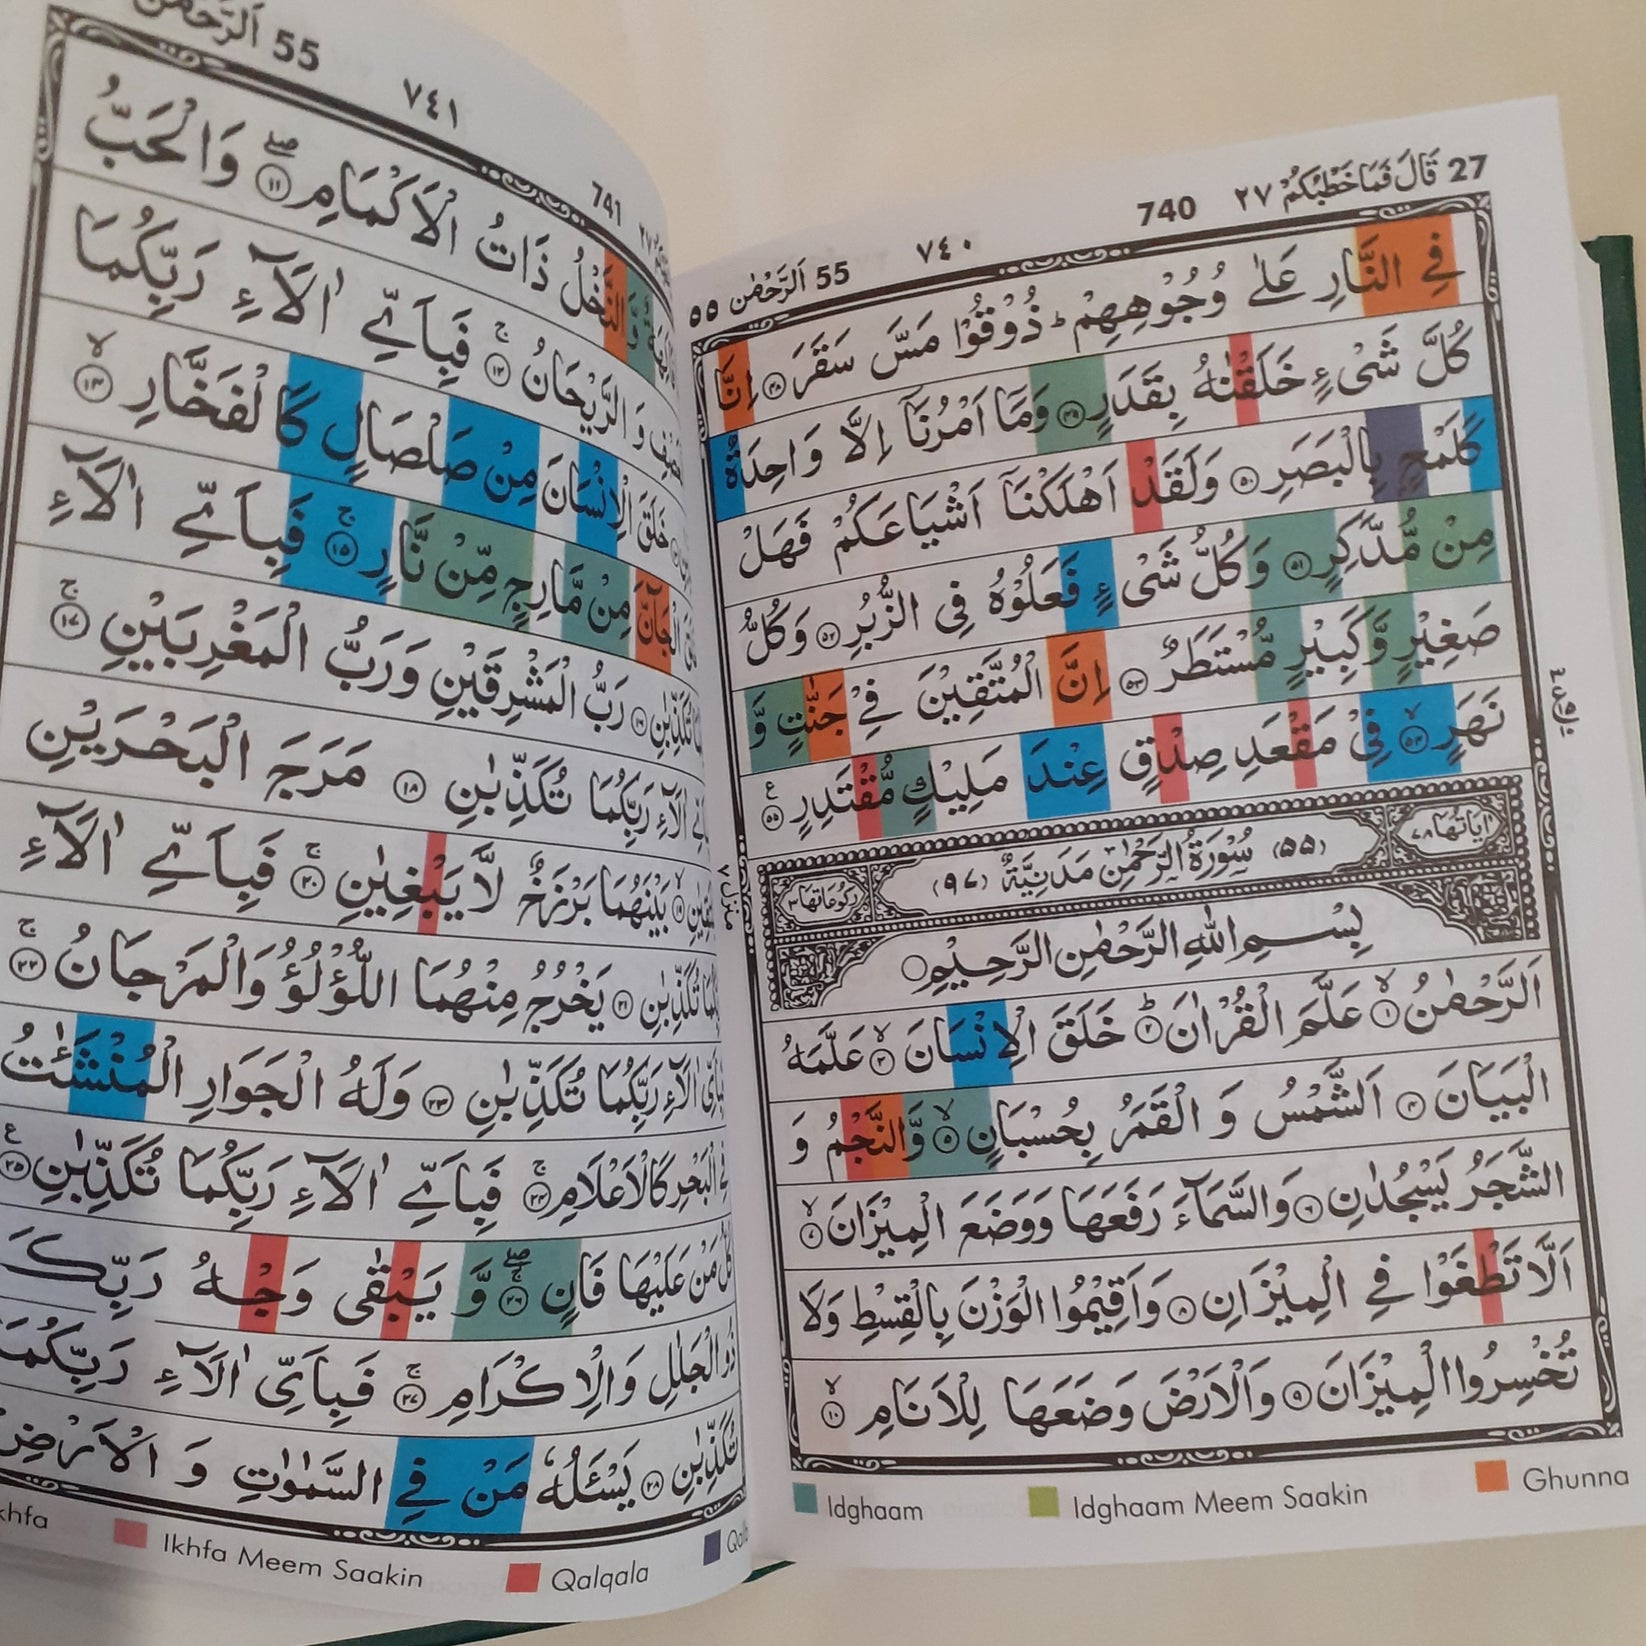 27 قَالَ فَمَا خَطْبُكُمْ ٢٧
740
٧٤٠
55 اَلرَّحْمٰن ٥٥
فِي النَّارِ عَلٰى وُجُوْهِهِمْ ؕ ذُوْقُوْا مَسَّ سَقَرَ ﴿٤٨﴾ اِنَّا
كُلَّ شَىْءٍ خَلَقْنٰهُ بِقَدَرٍ ﴿٤٩﴾ وَمَاۤ اَمْرُنَاۤ اِلَّا وَاحِدَةٌ
كَلَمْحٍۭ بِالْبَصَرِ ﴿٥٠﴾ وَلَقَدْ اَهْلَكْنَاۤ اَشْيَاعَكُمْ فَهَلْ
مِنْ مُّدَّكِرٍ ﴿٥١﴾ وَكُلُّ شَىْءٍ فَعَلُوْهُ فِى الزُّبُرِ ﴿٥٢﴾ وَكُلُّ
صَغِيْرٍ وَّكَبِيْرٍ مُّسْتَطَرٌ ﴿٥٣﴾ اِنَّ الْمُتَّقِيْنَ فِىْ جَنّٰتٍ وَّ
نَهَرٍ ۙ﴿٥٤﴾ فِىْ مَقْعَدِ صِدْقٍ عِنْدَ مَلِيْكٍ مُّقْتَدِرٍ ﴿٥٥﴾ ع
اٰيَاتُهَا ٧٨
(٥٥) سُوْرَةُ الرَّحْمٰنِ مَدَنِيَّةٌ (٩٧)
رُكُوْعَاتُهَا ٣
بِسْمِ اللّٰهِ الرَّحْمٰنِ الرَّحِيْمِ
اَلرَّحْمٰنُ ۙ﴿١﴾ عَلَّمَ الْقُرْاٰنَ ؕ﴿٢﴾ خَلَقَ الْاِنْسَانَ ۙ﴿٣﴾ عَلَّمَهُ
الْبَيَانَ ﴿٤﴾ اَلشَّمْسُ وَ الْقَمَرُ بِحُسْبَانٍ ۙ﴿٥﴾ وَّالنَّجْمُ وَ
الشَّجَرُ يَسْجُدٰنِ ﴿٦﴾ وَالسَّمَآءَ رَفَعَهَا وَوَضَعَ الْمِيْزَانَ ۙ﴿٧﴾
اَلَّا تَطْغَوْا فِى الْمِيْزَانِ ﴿٨﴾ وَاَقِيْمُوا الْوَزْنَ بِالْقِسْطِ وَلَا
تُخْسِرُوا الْمِيْزَانَ ﴿٩﴾ وَالْاَرْضَ وَضَعَهَا لِلْاَنَامِ ۙ﴿١٠﴾
Idghaam
Idghaam Meem Saakin
Ghunna
741
٧٤١
اَلرَّحْمٰن 55
النَّخْلُ ذَاتُ الْاَكْمَامِ ۖ﴿١١﴾ وَالْحَبُّ
وَ الرَّيْحَانُ ۚ﴿١٢﴾ فَبِاَىِّ اٰلَآءِ رَبِّكُمَا
خَلَقَ الْاِنْسَانَ مِنْ صَلْصَالٍ كَالْفَخَّارِ ۙ﴿١٤﴾
الْجَآنَّ مِنْ مَّارِجٍ مِّنْ نَّارٍ ۚ﴿١٥﴾ فَبِاَىِّ اٰلَآءِ
تُكَذِّبٰنِ ﴿١٦﴾ رَبُّ الْمَشْرِقَيْنِ وَرَبُّ الْمَغْرِبَيْنِ ۚ﴿١٧﴾
اٰلَآءِ رَبِّكُمَا تُكَذِّبٰنِ ﴿١٨﴾ مَرَجَ الْبَحْرَيْنِ
ۙ﴿١٩﴾ بَيْنَهُمَا بَرْزَخٌ لَّا يَبْغِيٰنِ ۚ﴿٢٠﴾ فَبِاَىِّ اٰلَآءِ
تُكَذِّبٰنِ ﴿٢١﴾ يَخْرُجُ مِنْهُمَا اللُّؤْلُؤُ وَالْمَرْجَانُ ۚ﴿٢٢﴾
اٰلَآءِ رَبِّكُمَا تُكَذِّبٰنِ ﴿٢٣﴾ وَلَهُ الْجَوَارِ الْمُنْشَئٰتُ
فِى الْبَحْرِ كَالْاَعْلَامِ ۚ﴿٢٤﴾ فَبِاَىِّ اٰلَآءِ رَبِّكُمَا تُكَذِّبٰنِ ﴿٢٥﴾ ع
كُلُّ مَنْ عَلَيْهَا فَانٍ ۖ﴿٢٦﴾ وَّ يَبْقٰى وَجْهُ رَبِّكَ
ذُو الْجَلٰلِ وَالْاِكْرَامِ ۚ﴿٢٧﴾ فَبِاَىِّ اٰلَآءِ رَبِّكُمَا
تُكَذِّبٰنِ ﴿٢٨﴾ يَسْـَٔلُهٗ مَنْ فِى السَّمٰوٰتِ وَ الْاَرْضِ
Ikhfa Meem Saakin
Qalqala